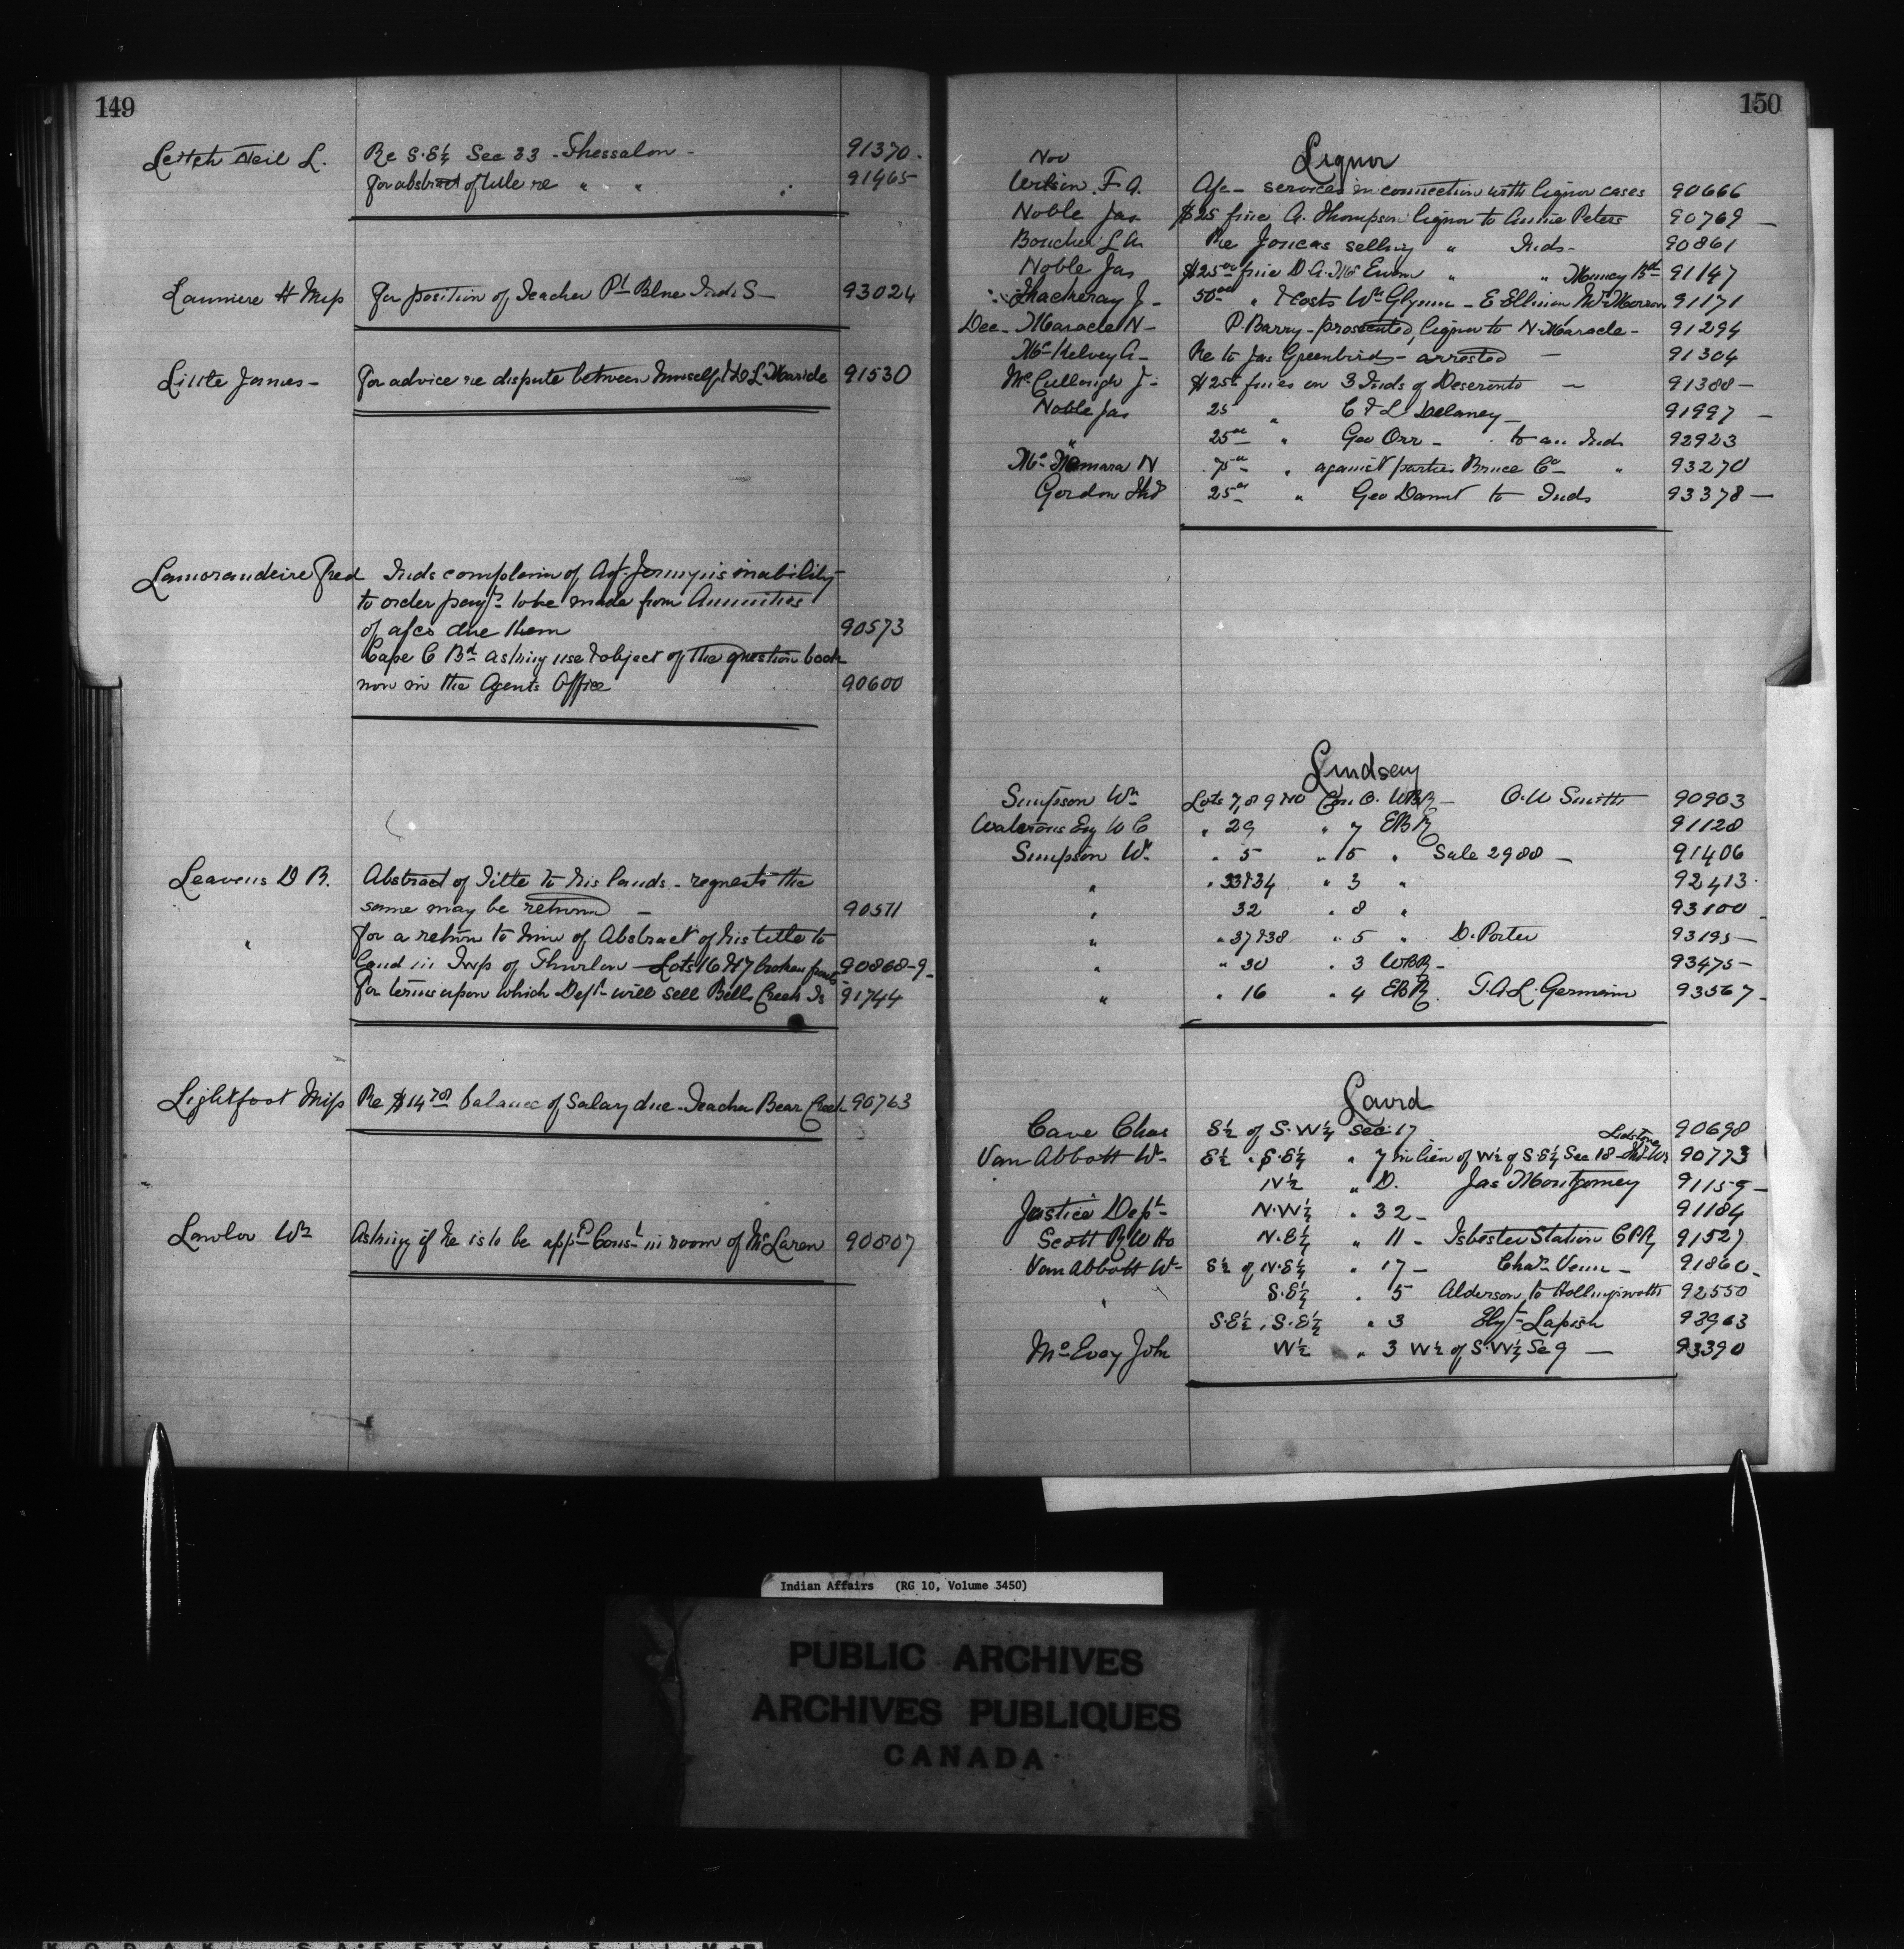 149
Leitch Neil L. Re S.E¼ Sec 33 - Thessalon - 91370.
For abstract of title re " " " 91465
Lanniere H Miss For position of Teacher Pt Blue Inds S - 93024
Little James - For advice re dispute between himself & L. Maricle 91530
Lamorandeire Fred Inds complain of Agt. Jermyn's inability
to order payts to be made from Annuities
of a/cs due them 90573
Cape C Bd asking use & object of the question book
now in the Agents Office 90600
Leavens D B. Abstract of Title to his lands - requests the
same may be return 90511
" For a return to him of Abstract of his title to
Land in Twp of Thurlow - Lots 16 & 17 broken front 90868-9-
For terms upon which Dept will sell Bells Creek Is 91744
Lightfoot Miss Re $14 78 balance of Salary due - Teacher Bear Creek 90763
Lawlor Wm Asking if he is to be appd Const in room of McLaren 90807
150
Nov Liquor
Wilson F A. A/c - services in connection with liquor cases 90666
Noble Jas $25 fine A. Thompson liquor to Annie Peters 90769 -
Boucher L A Re Joncas selling " Inds - 90861
Noble Jas $25 00 fine D A. Mc Ewen " " Muncey Bd 91147
Thackeray J - 50 00 " & Costs Wm Glynn - E Ellman 91171
Dec - Maracle N - P. Barry - prosecuted, liquor to N. Maracle - 91294
Mc Kelvey A - Re to Jas Greenbird - arrested - 91304
Mc Cullough J - $25 fines on 3 Inds of Deseronto - 91388 -
Noble Jas 25 " C & L Delaney - 91997 -
" 25 00 " Geo Orr - to an Ind 92923
Mc Namara N 75 00 " against parties Bruce Co - " 93270
Gordon Thos 25 00 " Geo to Inds 93378 -
Lindsay
Simpson Wm Lots 7, 8 9 & 10 Con 6. WBR - O. W Smith 90903
Waterous Eng W C " 29 " 7 EBR 91128
Simpson Wm " 5 " 5 " Sale 2988 - 91406
" " 33 & 34 " 3 " 92413.
" 32 " 8 " 93100 -
" " 37 & 38 " 5 " D. Porter 93195 -
" " 30 " 3 WBR - 93475 -
" " 16 " 4 EBR. T. A L. Germain 93567 -
Laird
Cave Chas S½ of S.W¼ Sec. 17 90698
Van Abbott Wm E½ " S.E¼ " 7 in lieu of W½ of S.E¼ Sec 18 - Lidstone 90773
N½ " D. Jas Montgomery 91159 -
Justice Dept - N.W¼ " 32 - 91184
Scott R W Ho N.E¼ " 11 - Isbester Station CPR 91527
Van Abbott Wm - S½ of N.E¼ " 17 - Chas. Venn - 91860 -
" S.E¼ " 5 Alderson to Hollingsworth 92550
S.E½ " S.E¼ " 3 Lapish 93963
Mc Evoy John W½ " 3 W½ of S.W¼ Se 9 - 93390
Indian Affairs (RG 10, Volume 3450)
PUBLIC ARCHIVES
ARCHIVES PUBLIQUES
CANADA